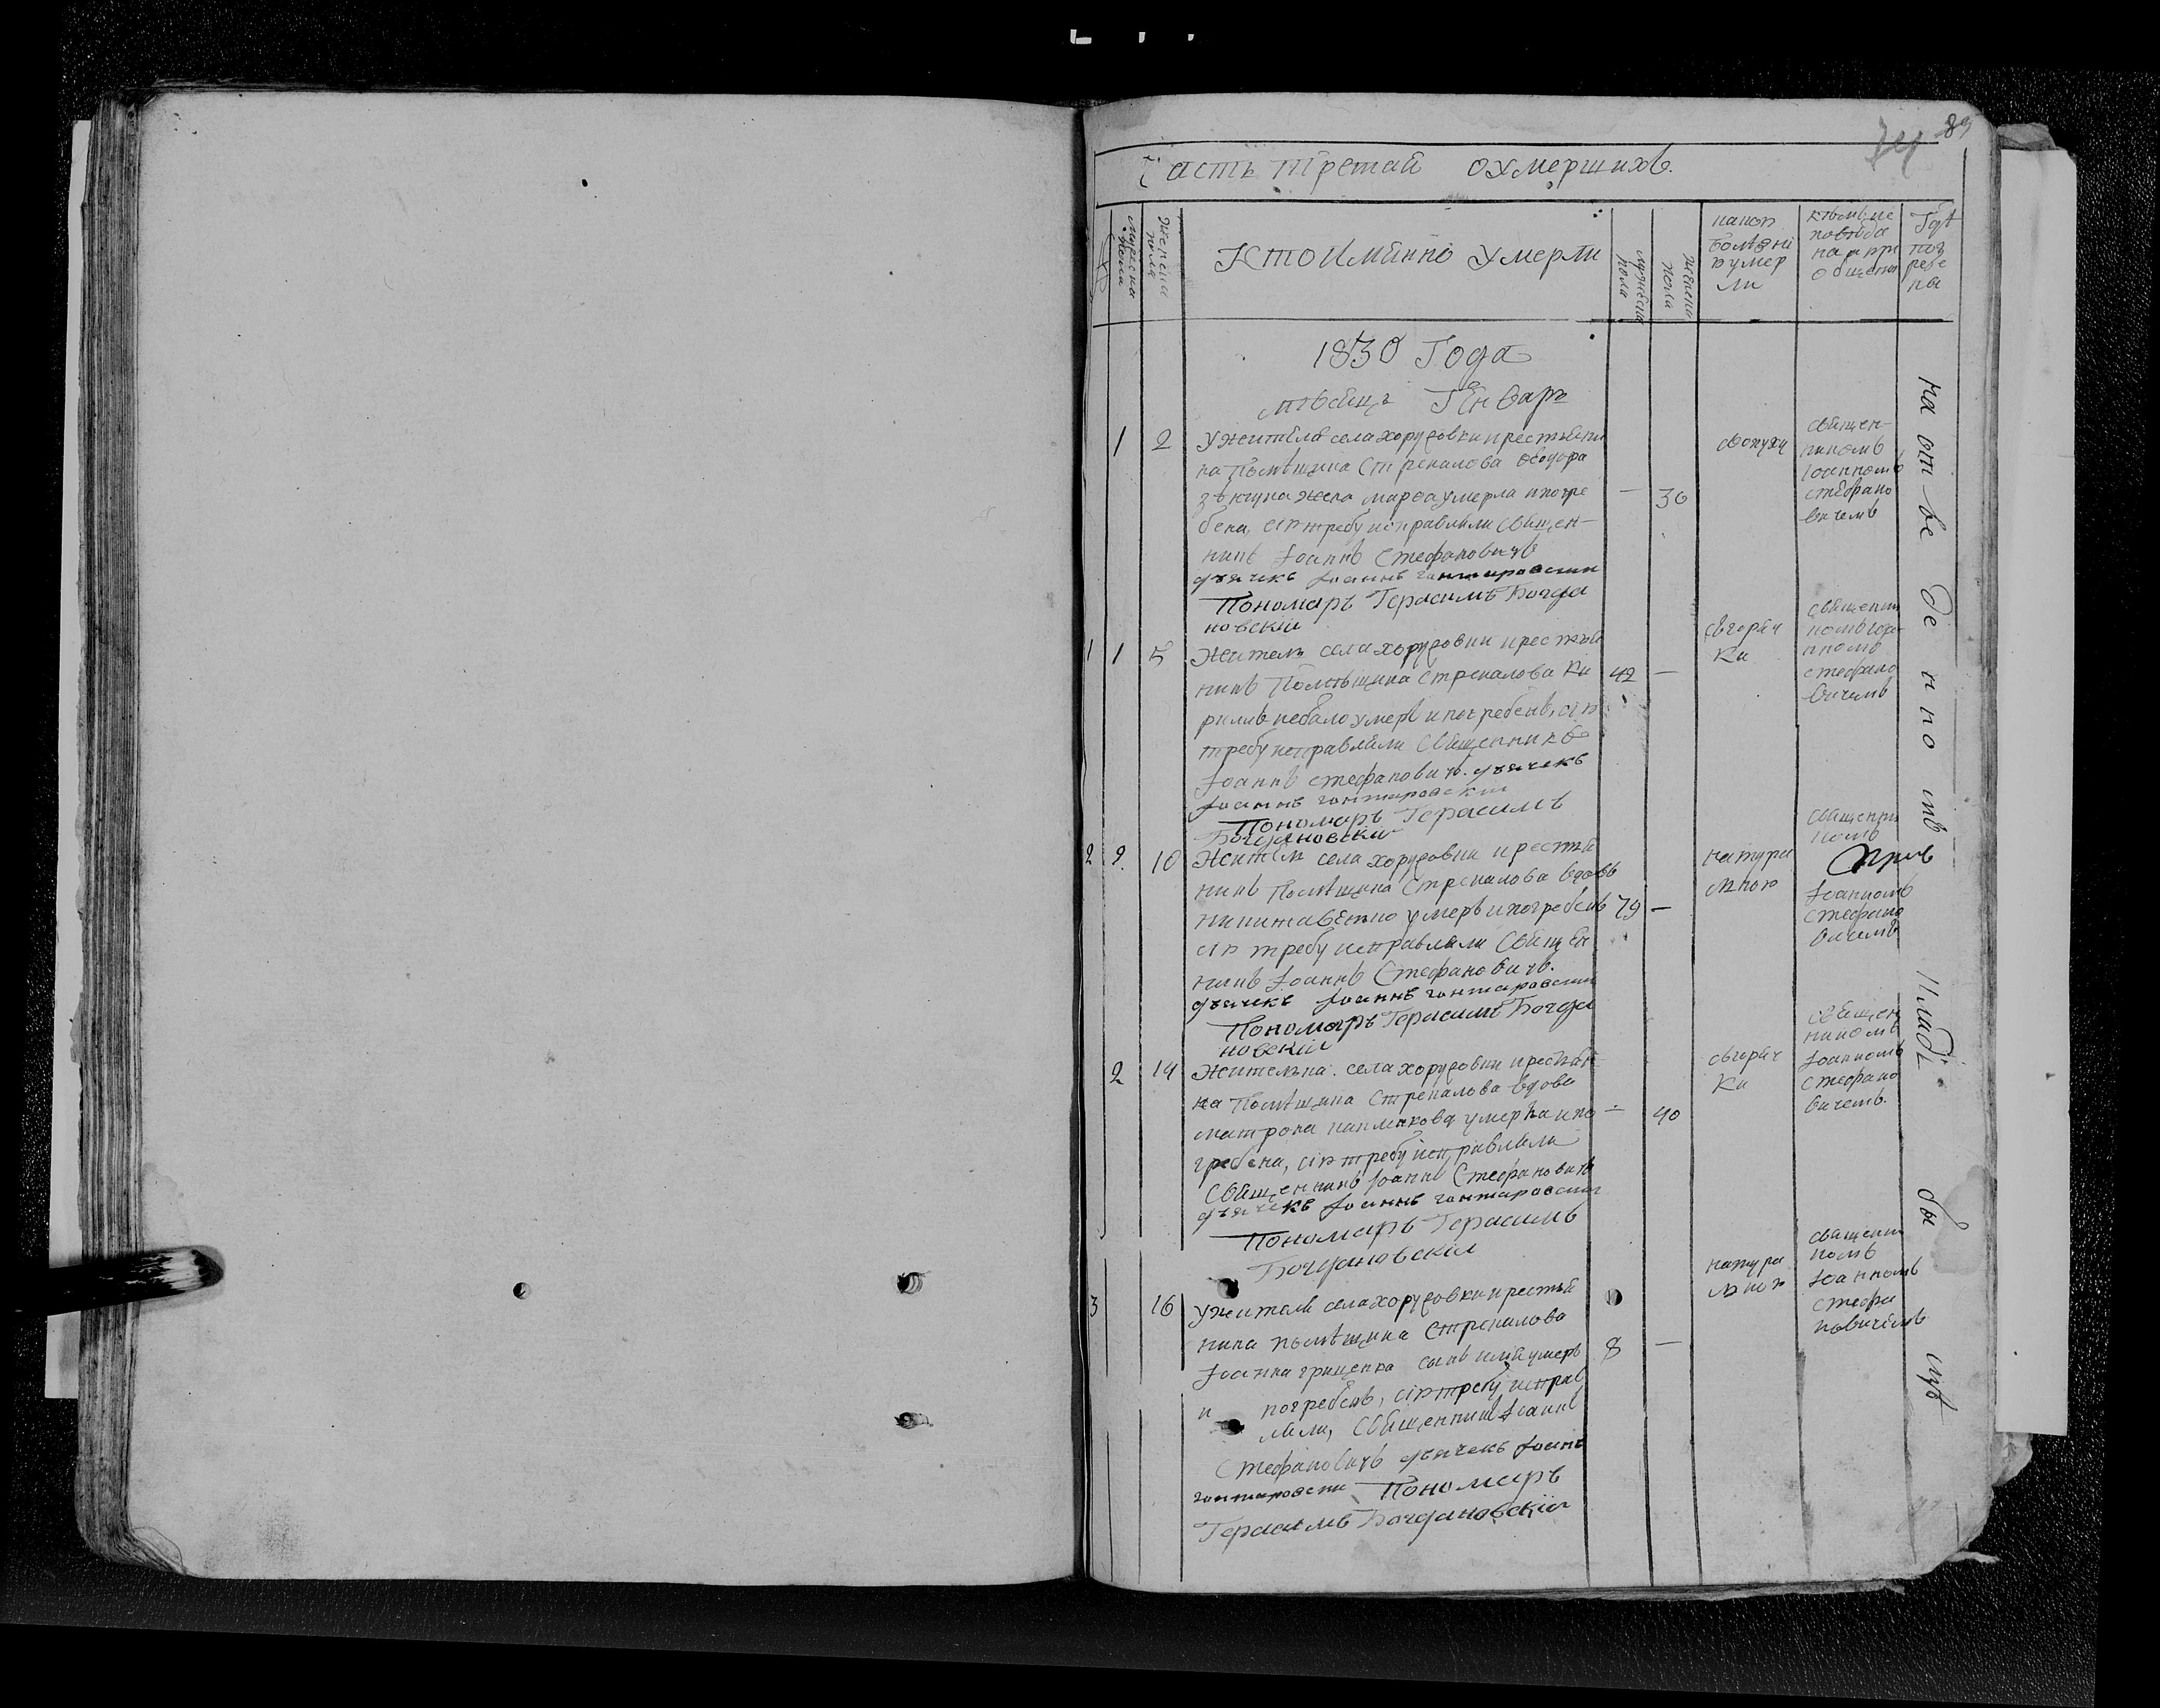 89
74
Часть третая о умершихъ.
мужеска пола
женска пола
Кто имянно умерли
мужеска пола
женска пола
какою болѣзнію умерли
Гдѣ погребены
1830 Года
мѣсяцъ Генварь
1 2 у жителя села хоружовки крестьяни
на помѣщика Стрекалова Ѳеодора
жена марѳа умерла и погре
бена, сію требу исправляли священ-
никъ Іоаннъ Стефановичъ
дьячекъ Іоаннъ гонтаровскій
Пономарь Герасимъ Богда
новскій
30
священ-
никомъ
Іоанномъ
стефано
вичемъ
1 1 5 Житель села хоружовки крестья
нинъ Помѣщика Стрекалова Ки
рилъ небало умеръ и погребенъ, сію
требу исправляли Священникъ
Іоаннъ стефановичъ. дьячекъ
Іоаннъ гонтаровскій
Пономарь Герасимъ
Богдановскій
42 —
сгоряч
ки
священни
комъ Іоа-
нномъ
стефано
вичемъ
2 2. 10 Житель села хоружовки крестья
нинъ Помѣщика Стрекалова вдовъ
умеръ и погребенъ
сію требу исправляли Священ
никъ Іоаннъ Стефановичъ.
дьячекъ Іоаннъ гонтаровскій
Пономарь Герасимъ Богда
новскій
79 —
натура
льною
священни
комъ
Іоанномъ
стефано
вичемъ
2 14 Жителька села хоружовки крестьян-
ка Помѣщика Стрекалова вдова
матрона умерла и по
гребена, сію требу исправляли
Священникъ Іоаннъ Стефановичъ
дьячекъ Іоаннъ гонтаровскій
Пономарь Герасимъ
Богдановскій
— 40
сгоряч
ки
священ
никомъ
Іоанномъ
стефано
вичемъ.
3 16 у жителя села хоружовки крестья
нина помѣщика Стрекалова
Іоанна гриценка сынъ илія умеръ
и погребенъ, сію требу исправ
ляли, Священникъ Іоаннъ
Стефановичъ дьячекъ Іоаннъ
гонтаровскій Пономарь
Герасимъ Богдановскій
8 —
натура
льною
священни
комъ
Іоанномъ
стефа
новичемъ
на отведенномъ кладбыщѣ